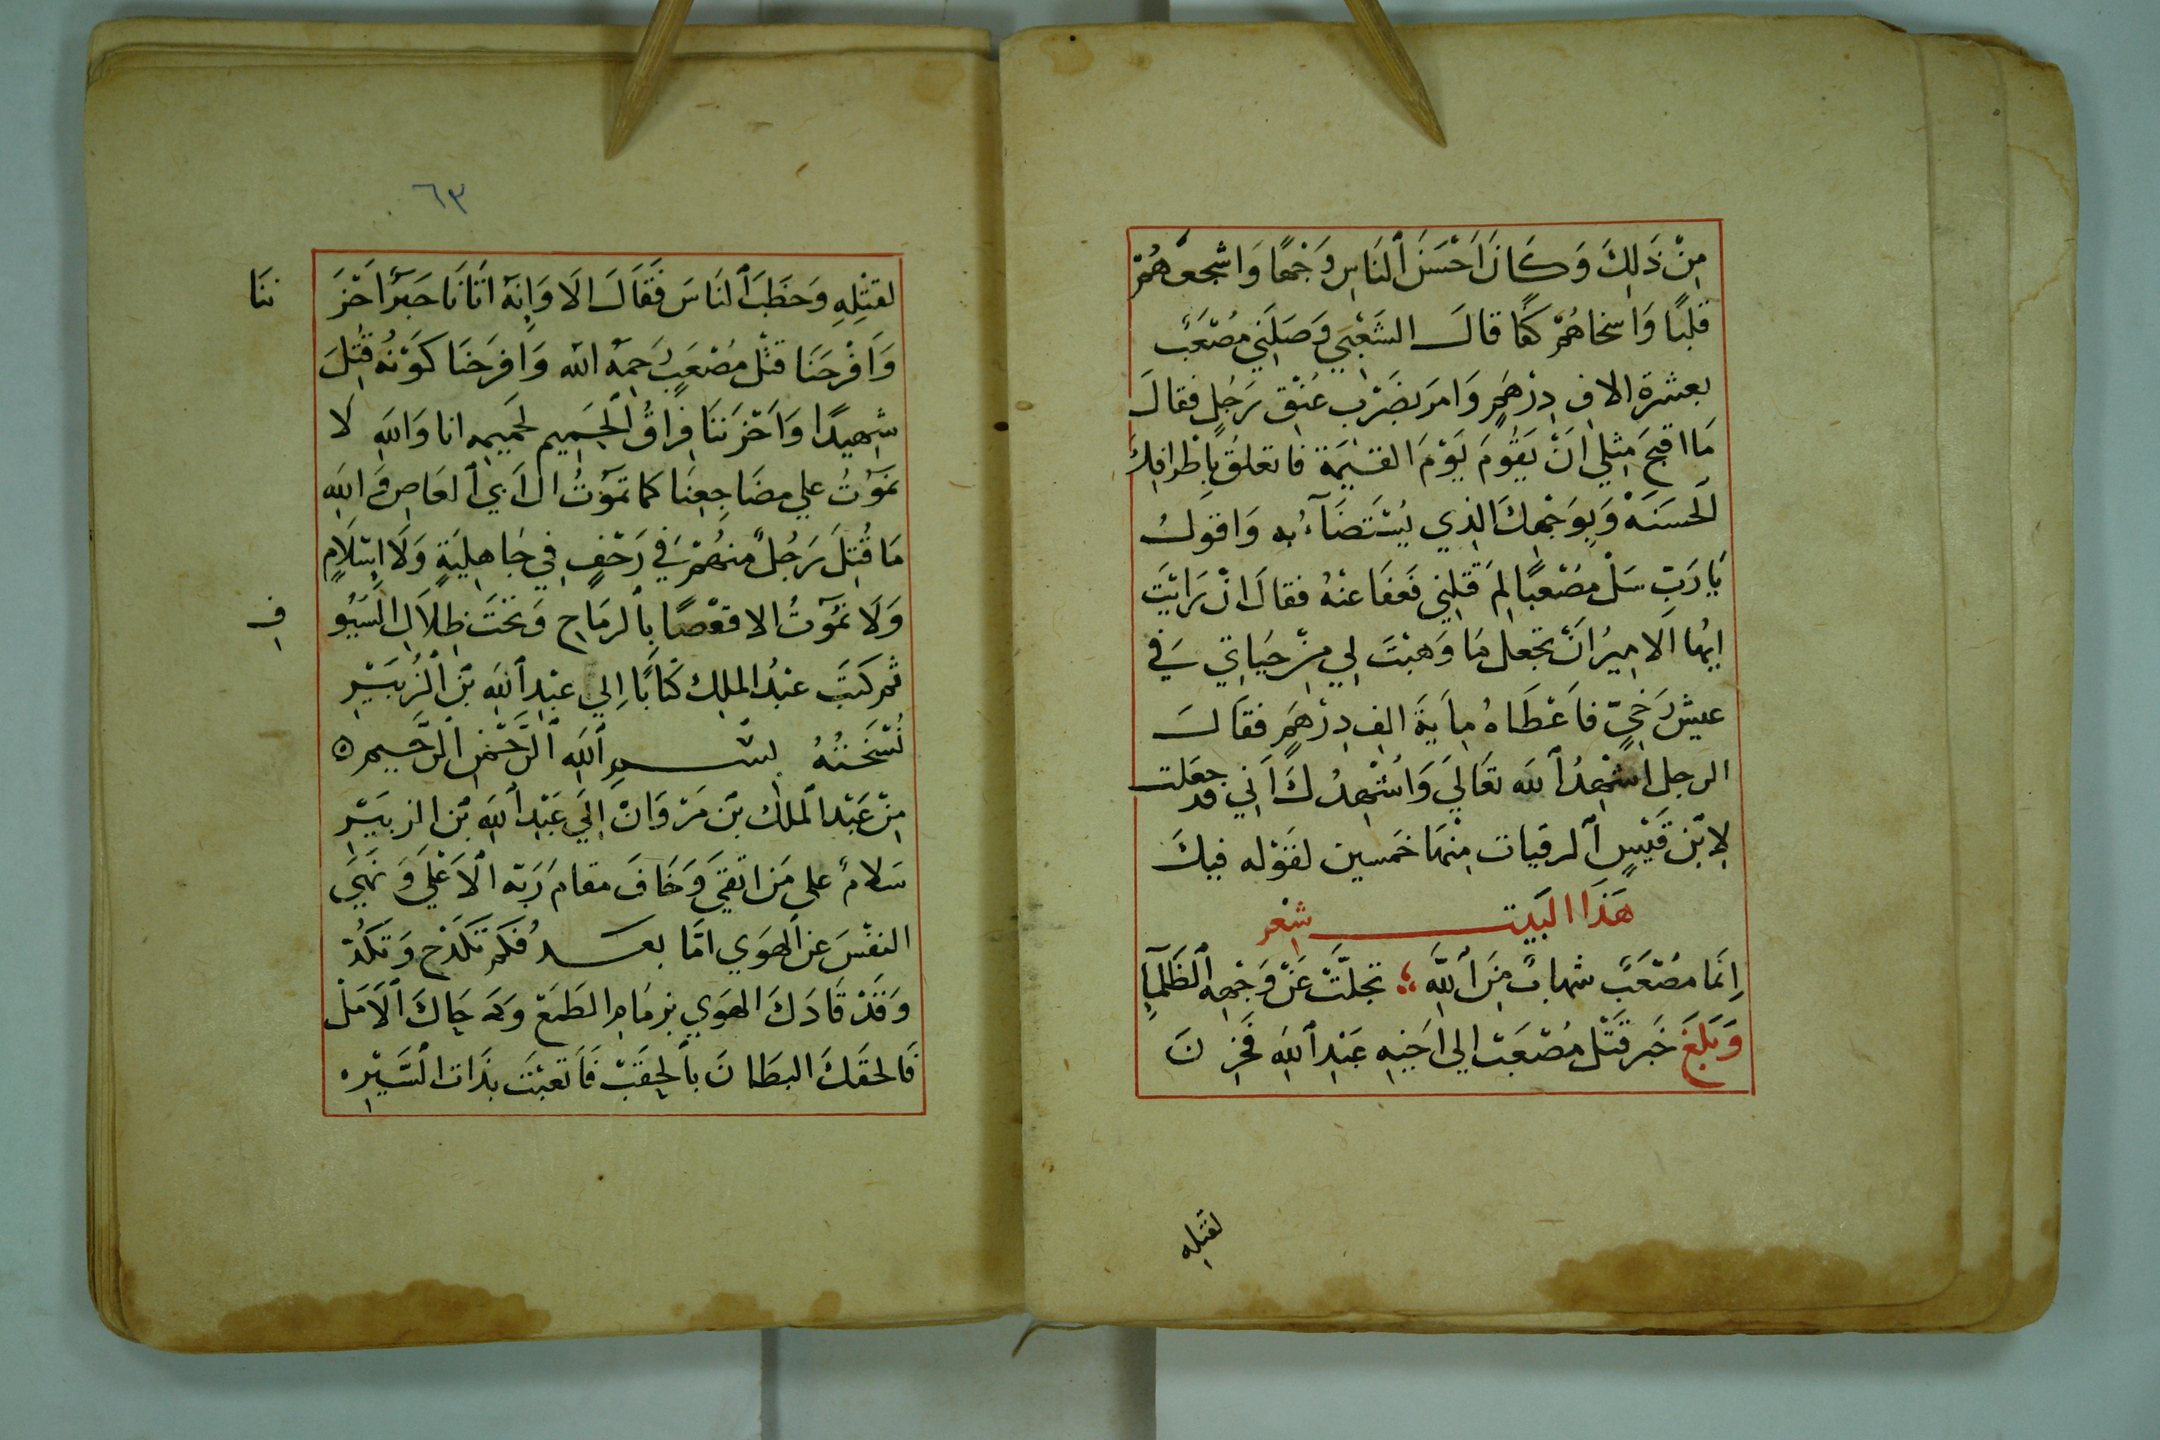 مِنْ ذَلِكَ وَكَانَ اَحْسَنَ ٱلنَاسِ وَجْهًا وَاَشْجعهُمْ
قلبًا وَاسخاهُمْ كفًا قالَ الشَعْبَيِ وَصَلَنِي مُصْعَبٌ
بعشرة الاف دِرْهَمٍ وَامَر بضَرْب عُنْقِ رَجُلٍ فقالَ
مَا اقبحَ مِثلِي اَنْ يَقُومَ يَوْمَ القيٰمَة فاتعلقُ بِاَطْرافِكَ
الحسَنَهْ وَبِوَجْهِكَ الذِي يُسْتَضَآءُ به وَاقولُ
يَا رَبِ سَلْ مصْعَبًا لِمَ قتَلنِي فَعَفَا عنْهُ فقالَ انْ رَايْتَ
ايُها الامِيرُ اَنْ تجعل مَا وَهبْتَ لِي مِنْ حَيَاتِي فِي
عيش رَخيٍّ فاَعْطَاهُ مِايَةَ الفِ دِرْهَمٍ فقالَ
الرجل اُشْهِدُ ٱللَه تعَالَي وَاُشْهِدُ كَ اَنِي قد جعَلت
لاِبْنِ قَيْسٍ ٱلرقيات مِنْهَا خَمسين لقَوْلِه فيكَ
هَذَا البَيت شِعْر
اِنَما مصْعَبٌ شهابٌ مِنَ ٱللَّهِ ؛ تجلَّتْ عَنْ وَجْهِهِ ٱلظَلمآءُ
وَبَلَغَ خَبر قَتْل مُصْعَبْ اِلي اَخِيهِ عَبْدِ ٱللَهِ فَحَزِ نَ
لقَتلِهِ
٦٣
لقتْلِهِ وَخطَبَ ٱلنَاسَ فَقَالَ الَا وَاِنهَ اتَانَا خَبَرٌ اَحْزَ نَنَا
وَاَفْرَحَنَا قتْل مُصْعَبٍ رَحِمَهُ الله وَافرَحَنَا كوْنُهُ قُتِلَ
شهِيدًا وَاَحْزَنَنَا فِرَاقُ ٱلْحَمِيمِ لحَمِيمِهِ انا وَاللَهِ لَا
نَمُوتُ علي مضَاجِعِنَا كما تَمُوْتُ ال اَبِي ٱلعَاصِ وَاللَهِ
مَا قُتِلَ رَجُلٌ مِنهُمْ فِي زَحْفٍ فِي جَاهِلِيَةٍ وَلَا اِسْلَامٍ
وَلَا نَمُوْتُ الا قعْصًا بِٱلرمَاحِ وَتحْتَ ظِلَالِ السُيُو فِ
ثم كتَبَ عبْدُ الملِك كتَابًا اِلي عبْدِ ٱللَه بْن ٱلزُبيَرِ
نُسْخَتُهُ بِسْمِ ٱللَهِ ٱلرَّحْمَنِ ٱلرَّحِيمِ ه
مِنْ عَبْد ٱلملك بْن مَرْوَانْ اِلَي عَبْدِ ٱللَهِ بْنِ الزبيَرِ
سَلامٌ علي مَنْ اتَقَي وَخَافَ مقامَ رَبّه ٱلاَعْلَي وَنَهَي
النفْسَ عن الهَوَي امَّا بعَدُ فكم تَكدَح وَتكُدّ
وَقَدْ قَادَكَ الهَوَي بزمَامِ الطَمَعْ وَكم جاكَ ٱلاَمَلْ
فَالحقَكَ البطَانَ بِٱلحِقَبْ فَاَتعبْتَ بذَات السَّيْرِ